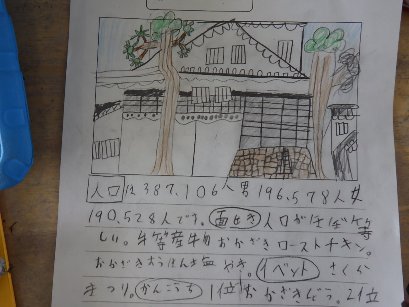 人口は387,106人男196,578人女
190,528人です。面白さ人口がほぼ等
しい。名産物おかざきローストチキン。
おかざきおうはん塩やき。イベントさくら
まつり。かんこうち1位おかざきじょう。2位